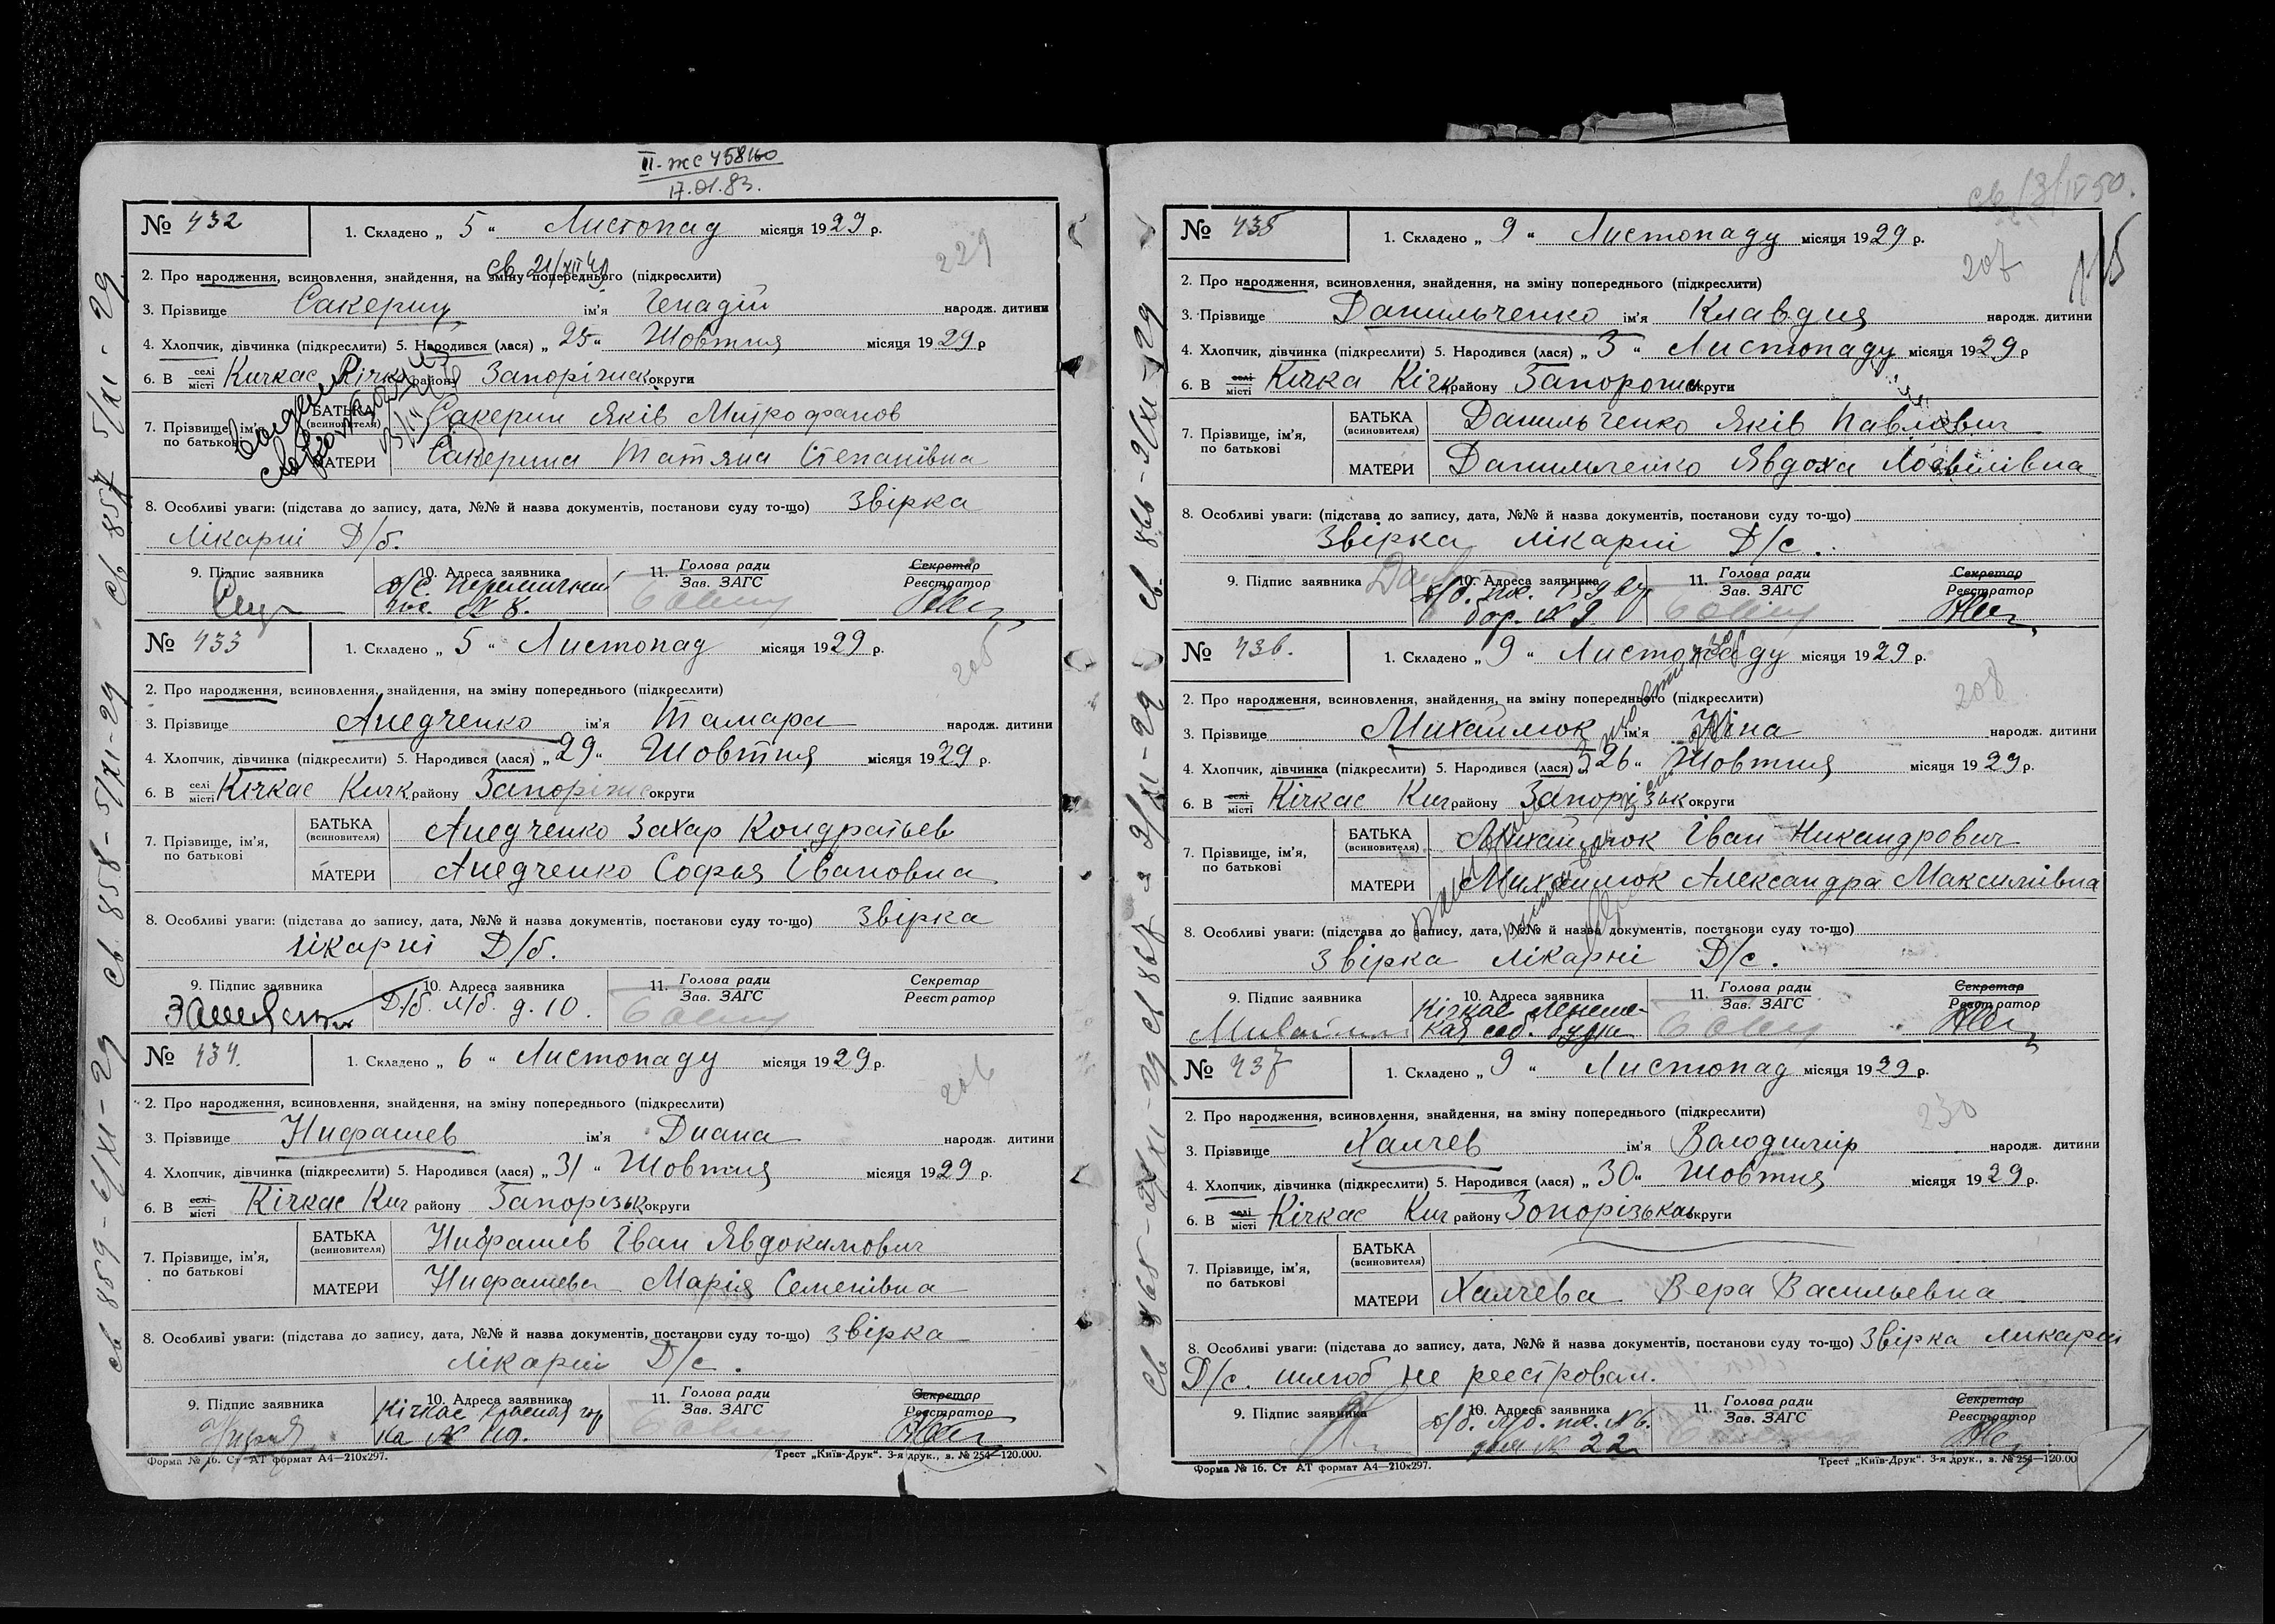 II-ЖС 458160
17.01.83.
№ 432
1. Складено „ 5 “ Листопад місяця 1929 р.
229
св 21/XII
2. Про народження, всиновлення, знайдення, на зміну попереднього (підкреслити)
3. Прізвище Сакерин ім'я Генадій народж. дитини
4. Хлопчик, дівчинка (підкреслити) 5. Народився (лася) „ 25 “ Жовтня місяця 1929 р
6. В селі місті Кичкас Кічк району Запоріжськ округи
7. Прізвище, ім'я, по батькові
БАТЬКА (всиновителя) Сакерин Яків Митрофанов
МАТЕРИ Сакерина Татяна Степанівна
8. Особливі уваги: (підстава до запису, дата, №№ й назва документів, постанови суду то-що) Звірка
Лікарні Д/б.
9. Підпис заявника
10. Адреса заявника
11. Голова ради Зав. ЗАГС
Секретар Реєстратор
№ 433
1. Складено „ 5 “ Листопад місяця 1929 р.
205
2. Про народження, всиновлення, знайдення, на зміну попереднього (підкреслити)
3. Прізвище Анедченко ім'я Тамара народж. дитини
4. Хлопчик, дівчинка (підкреслити) 5. Народився (лася) „ 29 “ Жовтня місяця 1929 р.
6. В селі місті Кічкас Кичк району Запоріжс округи
7. Прізвище, ім'я, по батькові
БАТЬКА (всиновителя) Анедченко Захар Кондратьев
МАТЕРИ Анедченко Софья Івановна
8. Особливі уваги: (підстава до запису, дата, №№ й назва документів, постанови суду то-що) Звірка
лікарні Д/б.
9. Підпис заявника
10. Адреса заявника
Д/б. л/б. д. 10.
11. Голова ради Зав. ЗАГС
Секретар Реєстратор
№ 434.
1. Складено „ 6 “ Листопаду місяця 1929 р.
206
2. Про народження, всиновлення, знайдення, на зміну попереднього (підкреслити)
3. Прізвище Нифашев ім'я Диана народж. дитини
4. Хлопчик, дівчинка (підкреслити) 5. Народився (лася) „ 31 “ Жовтня місяця 1929 р.
6. В селі місті Кічкас Кич району Запорізьк округи
7. Прізвище, ім'я, по батькові
БАТЬКА (всиновителя) Нифашев Іван Явдокимович
МАТЕРИ Нифашева Марія Семенівна
8. Особливі уваги: (підстава до запису, дата, №№ й назва документів, постанови суду то-що) звірка
лікарні Д/с.
9. Підпис заявника
10. Адреса заявника
Кічкас Красная гор
ка №
11. Голова ради Зав. ЗАГС
Секретар Реєстратор
Форма № 16. Ст АТ формат А4—210х297.
Трест „Київ-Друк“. 3-я друк., з. № 254—120.000.
св 859 - 6/XI - 29 св 858 - 5/XI - 29 св 857 5/XI - 29
св 13/IV 50.
№ 435
1. Складено „ 9 “ Листопаду місяця 1929 р.
207
2. Про народження, всиновлення, знайдення, на зміну попереднього (підкреслити)
3. Прізвище Данильченко ім'я Клавдия народж. дитини
4. Хлопчик, дівчинка (підкреслити) 5. Народився (лася) „ 3 “ Листопаду місяця 1929 р
6. В селі місті Кічка Кічк району Запорожск округи
7. Прізвище, ім'я, по батькові
БАТЬКА (всиновителя) Данильченко Яків Павлович
МАТЕРИ Данильченко Явдоха Логвинівна
8. Особливі уваги: (підстава до запису, дата, №№ й назва документів, постанови суду то-що)
Звірка лікарні Д/с.
9. Підпис заявника
10. Адреса заявника
бар. № 9
11. Голова ради Зав. ЗАГС
Секретар Реєстратор
№ 436.
1. Складено „ 9 “ Листопаду місяця 1929 р.
208
2. Про народження, всиновлення, знайдення, на зміну попереднього (підкреслити)
3. Прізвище Михайлюк ім'я Ніна народж. дитини
4. Хлопчик, дівчинка (підкреслити) 5. Народився (лася) „ 26 “ Жовтня місяця 1929 р.
6. В селі місті Кічкас Кич району Запорізьк округи
7. Прізвище, ім'я, по батькові
БАТЬКА (всиновителя) Михайлюк Іван Никандрович
МАТЕРИ Михайлюк Александра Максимівна
8. Особливі уваги: (підстава до запису, дата, №№ й назва документів, постанови суду то-що)
Звірка лікарні Д/с.
9. Підпис заявника
10. Адреса заявника
Кічкас
11. Голова ради Зав. ЗАГС
Секретар Реєстратор
№ 437
1. Складено „ 9 “ Листопад місяця 1929 р.
230
2. Про народження, всиновлення, знайдення, на зміну попереднього (підкреслити)
3. Прізвище Халчев ім'я Володимір народж. дитини
4. Хлопчик, дівчинка (підкреслити) 5. Народився (лася) „ 30 “ Жовтня місяця 1929 р.
6. В селі місті Кічкас Кич району Зопорізька округи
7. Прізвище, ім'я, по батькові
БАТЬКА (всиновителя)
МАТЕРИ Халчева Вера Васильевна
8. Особливі уваги: (підстава до запису, дата, №№ й назва документів, постанови суду то-що) Звірка ликарні
Д/с. шлюб не реестрован.
9. Підпис заявника
10. Адреса заявника
д/б. л/б. пос. № 6.
дом № 22
11. Голова ради Зав. ЗАГС
Секретар Реєстратор
Форма № 16. Ст АТ формат А4—210х297.
Трест „Київ-Друк“. 3-я друк., з. № 254—120.00